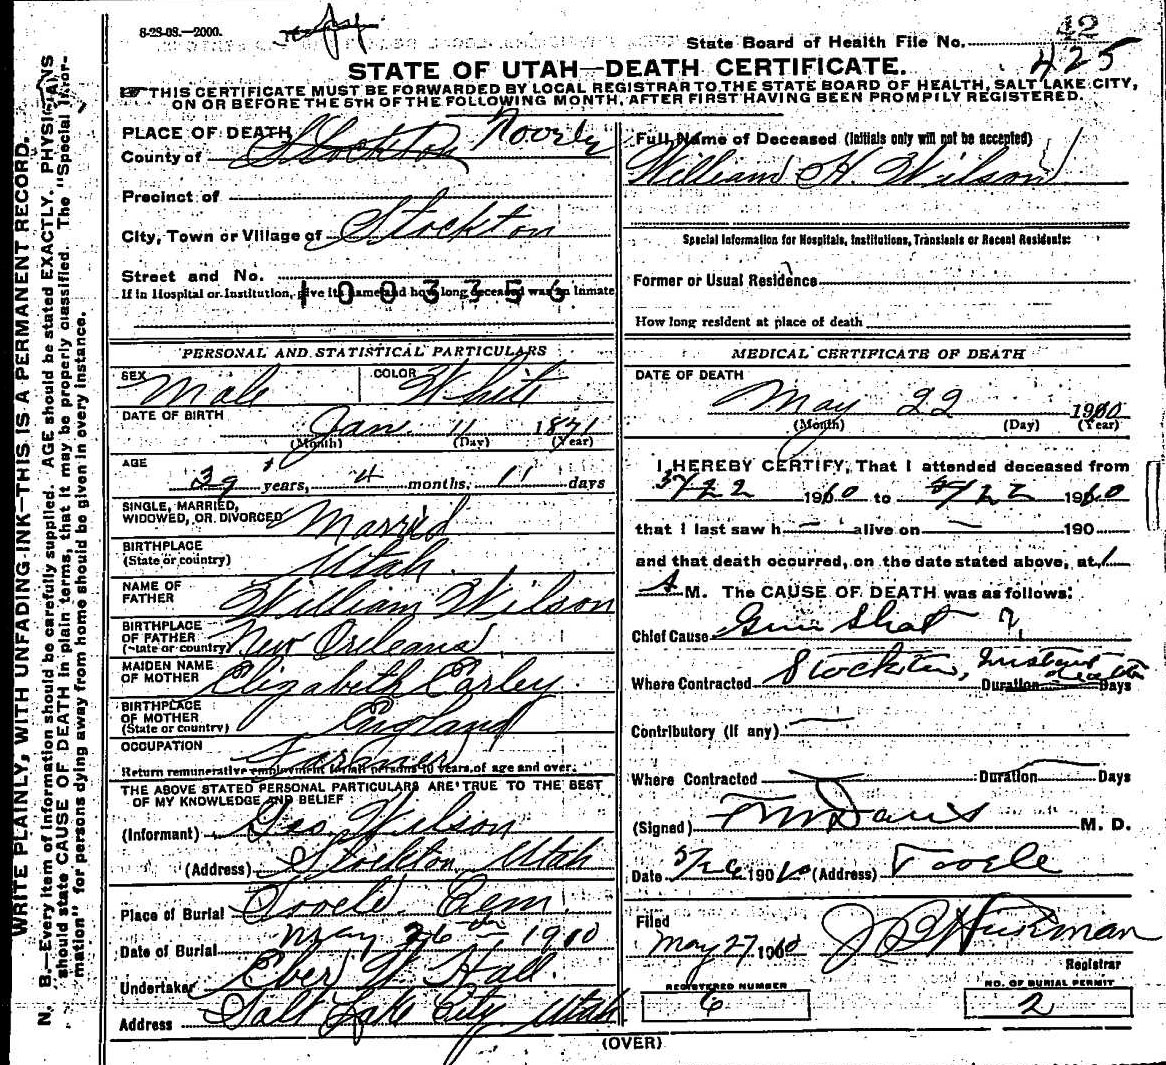 8-23-08.—2000.
42
State Board of Health File No. 425
STATE OF UTAH—DEATH CERTIFICATE.
THIS CERTIFICATE MUST BE FORWARDED BY LOCAL REGISTRAR TO THE STATE BOARD OF HEALTH, SALT LAKE CITY,
ON OR BEFORE THE 5TH OF THE FOLLOWING MONTH, AFTER FIRST HAVING BEEN PROMPILY REGISTERED.
WRITE PLAINLY, WITH UNFADING INK—THIS IS A PERMANENT RECORD.
N. B.—Every item of information should be carefully supplied. AGE should be stated EXACTLY. PHYSICIANS
should state CAUSE OF DEATH in plain terms, that it may be properly classified. The "Special Infor-
mation" for persons dying away from home should be given in every instance.
PLACE OF DEATH
County of Stockton Tooele
Precinct of
City, Town or Village of Stockton
Street and No.
If in Hospital or Institution, give its name and how long deceased was an Inmate
1003356
PERSONAL AND STATISTICAL PARTICULARS
SEX Male COLOR White
DATE OF BIRTH
Jan. 11 1871
(Month) (Day) (Year)
AGE
39 years, 4 months, 11 days
SINGLE, MARRIED,
WIDOWED, OR DIVORCED Married
BIRTHPLACE
(State or country) Utah.
NAME OF
FATHER William Wilson
BIRTHPLACE
OF FATHER
(State or country) New Orleans,
MAIDEN NAME
OF MOTHER Elizabeth Carley.
BIRTHPLACE
OF MOTHER
(State or country) England
OCCUPATION Farmer
Return remunerative employment for all persons 10 years of age and over.
THE ABOVE STATED PERSONAL PARTICULARS ARE TRUE TO THE BEST
OF MY KNOWLEDGE AND BELIEF
(Informant) Geo. Wilson
(Address) Stockton Utah
Place of Burial Tooele Cem.
Date of Burial May 26th 1910
Undertaker Eber W. Hall.
Address Salt Lake City Utah
Full Name of Deceased (Initials only will not be accepted)
William H. Wilson
Special Information for Hospitals, Institutions, Transients or Recent Residents:
Former or Usual Residence
How long resident at place of death
MEDICAL CERTIFICATE OF DEATH
DATE OF DEATH
May 22 1910
(Month) (Day) (Year)
I HEREBY CERTIFY, That I attended deceased from
5/22 1910 to 5/22 1910
that I last saw h— alive on — 190
and that death occurred, on the date stated above, at 1
A M. The CAUSE OF DEATH was as follows:
Chief Cause Gun Shot
Where Contracted Stockton, Instant death Duration Days
Contributory (if any) —
Where Contracted — Duration — Days
(Signed) T M Davis M. D.
Date 5/26 1910 (Address) Tooele
Filed
May 27 1910
Registrar
REGISTERED NUMBER
6
NO. OF BURIAL PERMIT
2
(OVER)